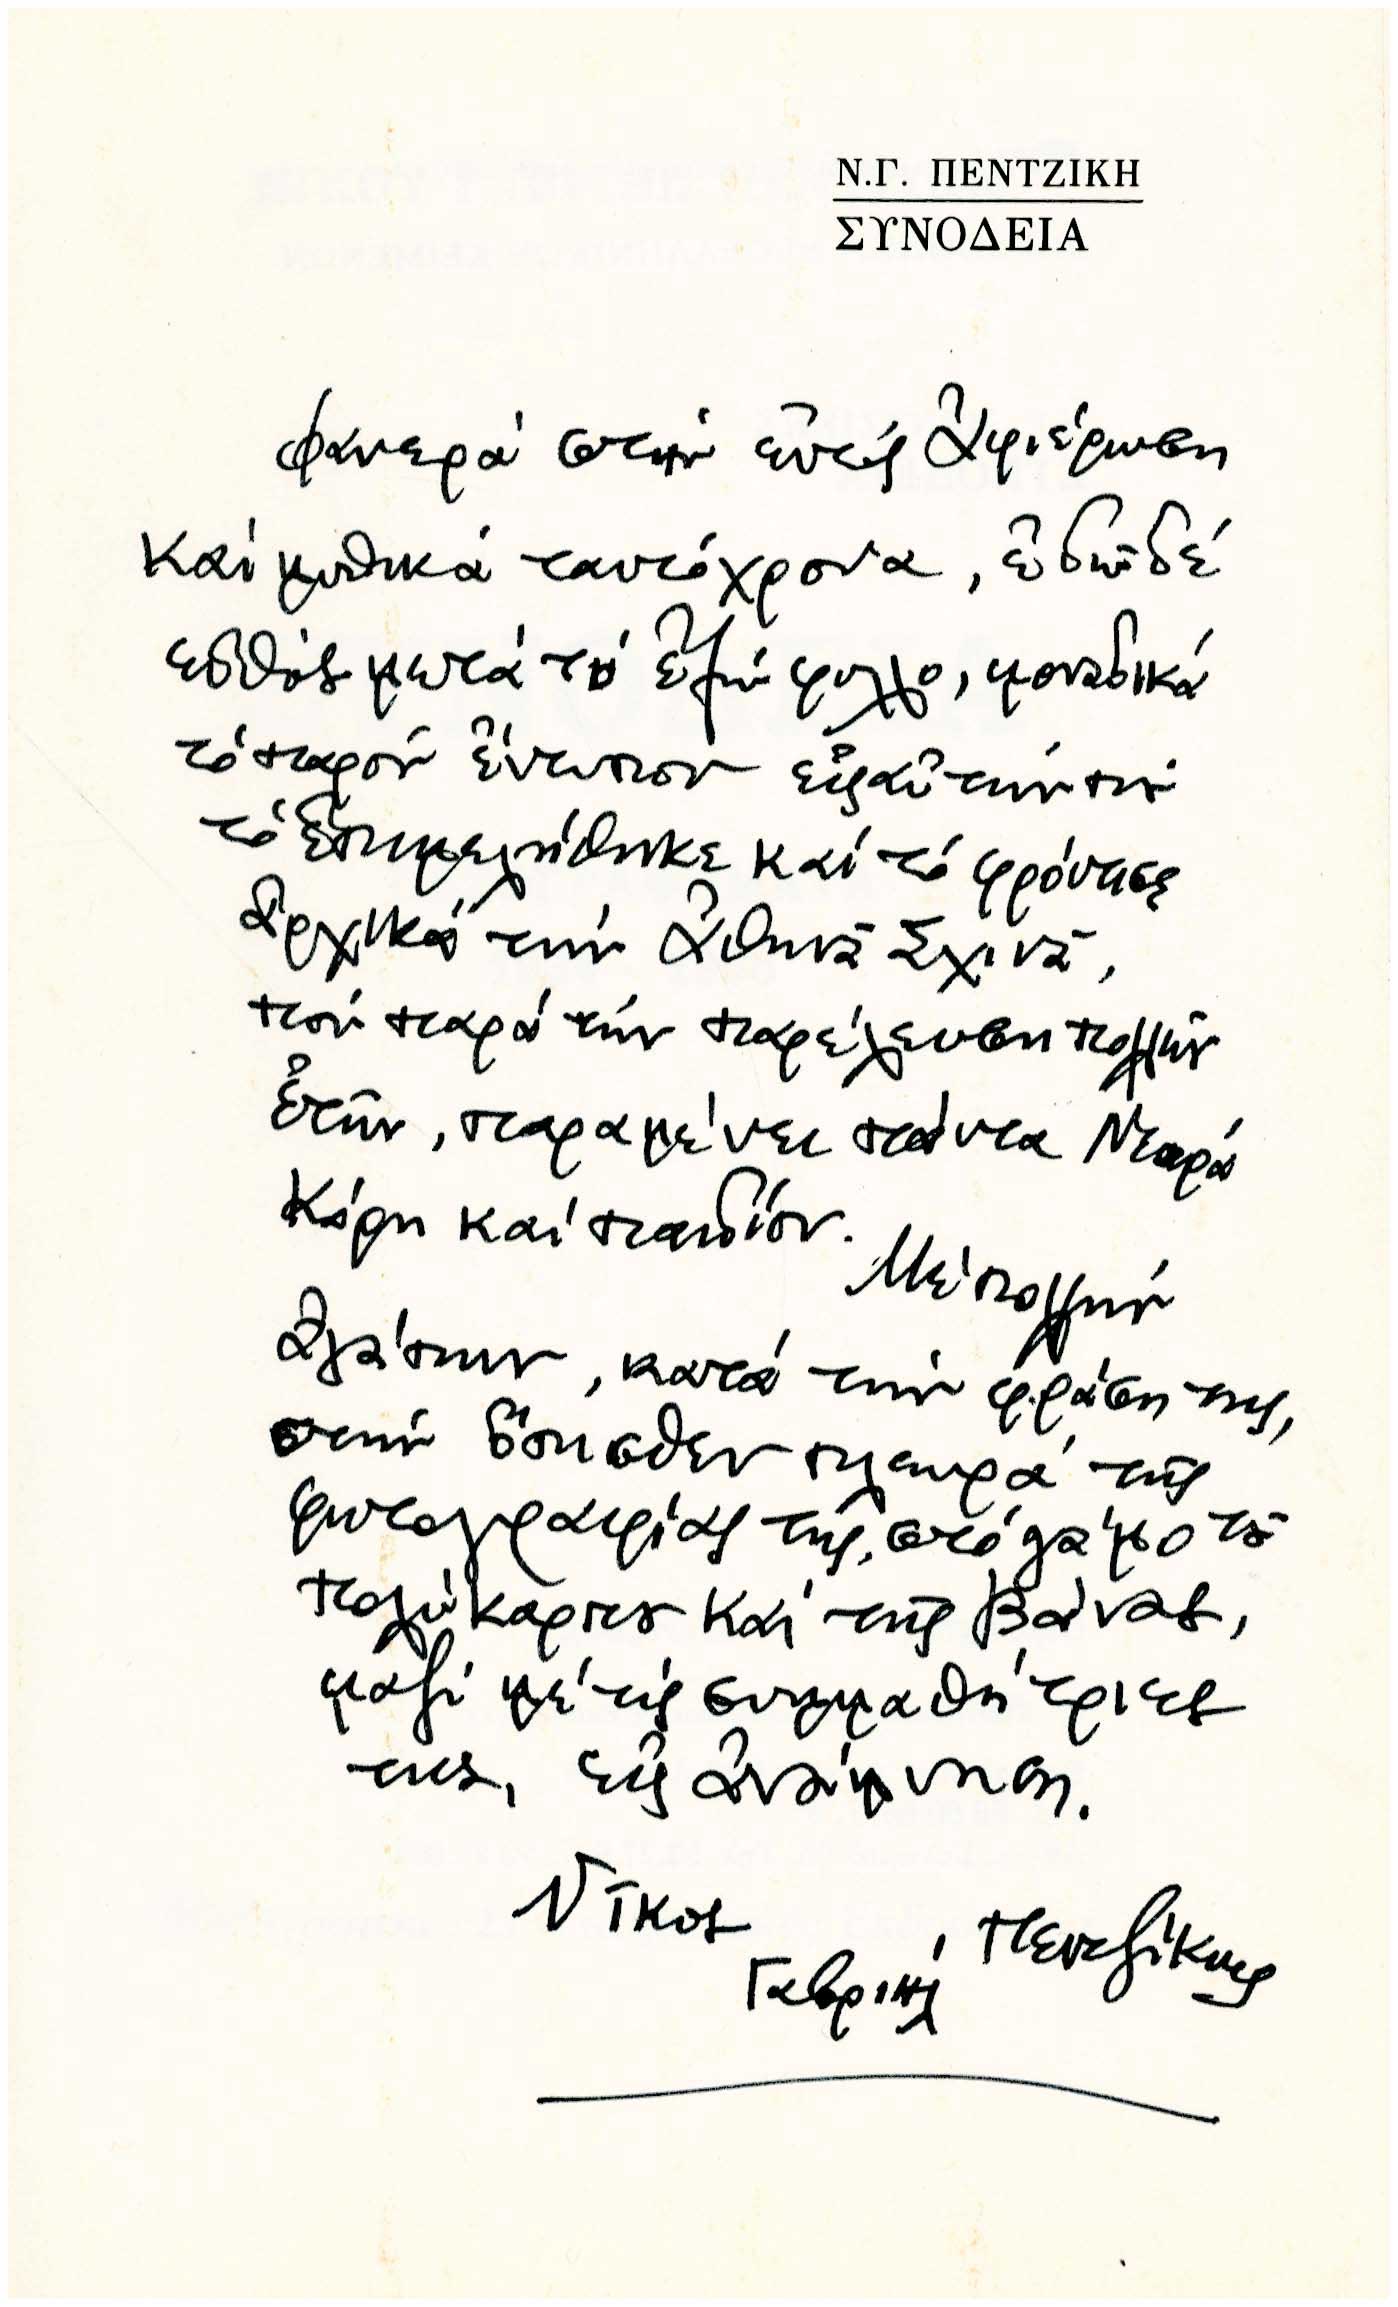 Ν.Γ. ΠΕΝΤΖΙΚΗ
ΣΥΝΟΔΕΙΑ
Φανερά στήν ἐντός Ἀφιέρωση
καί μυθικά ταυτόχρονα, ἐδῶ δέ
εὐθύς μετά τό ἐξώφυλλο, μοναδικά
τό παρόν ἔντυπον εἰς αὐτήν πού
τό ἐπιμελήθηκε καί τό φρόντισε
ἀρχικά τήν Ἀθηνᾶ Σχινᾶ,
πού παρά τήν παρέλευση πολλῶν
ἐτῶν, παραμένει πάντα Νεαρά
Κόρη καί παιδίον.
Μέ πολλήν
ἀγάπην, κατά τήν φράση της,
στήν ὄπισθεν πλευρά τῆς
φωτογραφίας τῆς, στό γάμο τοῦ
Πολύκαρπου καί τῆς Βάνας,
μαζί μέ τίς συμμαθήτριες
της, εἰς ἀνάμνηση.
Νῖκος
Γαβριήλ Πεντζίκης